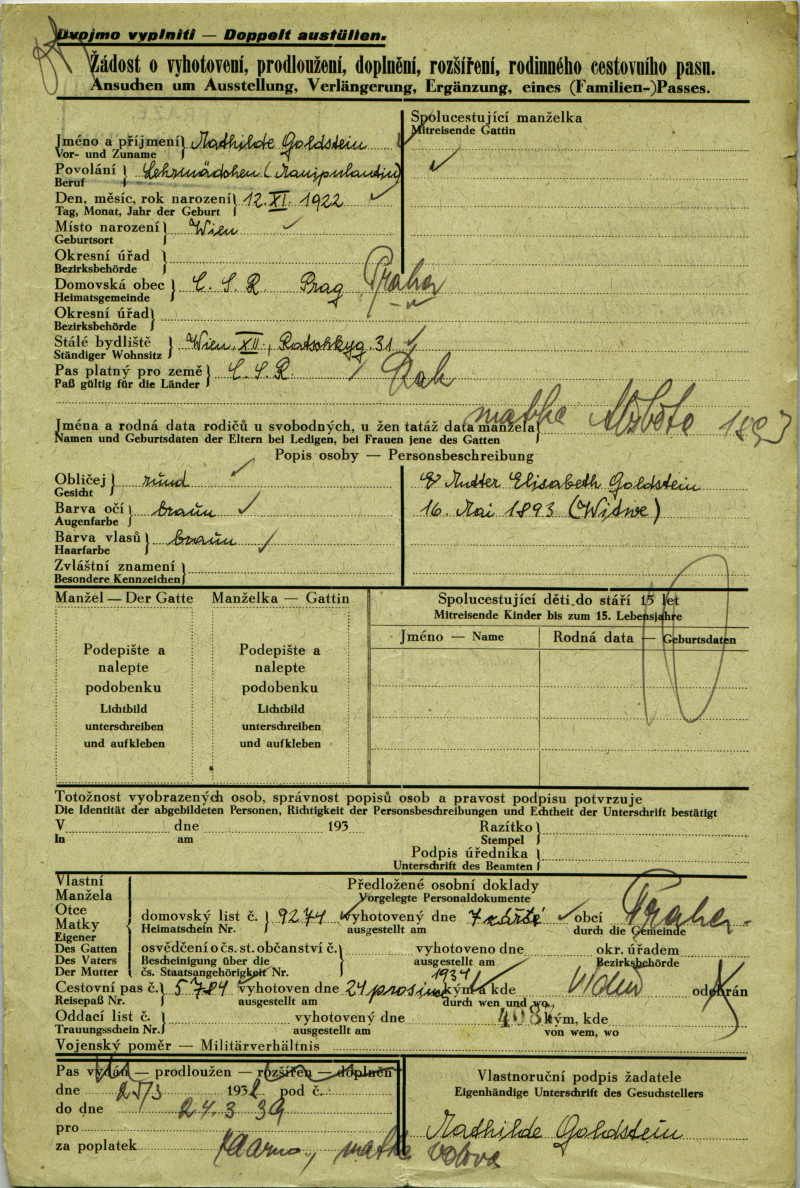 Dvojmo vyplniti — Doppelt austüllen.
Žádost o vyhotovení, prodloužení, doplnění, rozšíření, rodinného cestovního pasu.
Ansuchen um Ausstellung, Verlängerung, Ergänzung, eines (Familien-)Passes.
Spolucestující manželka
Mitreisende Gattin
Jméno a příjmení Mathilde Goldstein
Vor- und Zuname
Povolání Lehrmädchen (Manipulantin)
Beruf
Den, měsíc, rok narození 12. XI. 1922
Tag, Monat, Jahr der Geburt
Místo narození Wien
Geburtsort
Okresní úřad
Bezirksbehörde
Domovská obec Č. S. R. Prag Praha
Heimatsgemeinde
Okresní úřad
Bezirksbehörde
Stálé bydliště Wien, XII., 31
Ständiger Wohnsitz
Pas platný pro země Č. S. R. Rak
Paß gültig für die Länder
Jména a rodná data rodičů u svobodných, u žen tatáž data manžela matka Alžběta 1893
Namen und Geburtsdaten der Eltern bei Ledigen, bei Frauen jene des Gatten
Popis osoby — Personsbeschreibung
Obličej rund
Gesicht
Mutter Elisabeth Goldstein
Barva očí braun
Augenfarbe
16. Mai 1893 (Witwe)
Barva vlasů braun
Haarfarbe
Zvláštní znamení
Besondere Kennzeichen
Manžel — Der Gatte Manželka — Gattin
Podepište a
nalepte
podobenku
Lichtbild
unterschreiben
und aufkleben
Podepište a
nalepte
podobenku
Lichtbild
unterschreiben
und aufkleben
Spolucestující děti do stáří 15 let
Mitreisende Kinder bis zum 15. Lebensjahre
Jméno — Name Rodná data — Geburtsdaten
Totožnost vyobrazených osob, správnost popisů osob a pravost podpisu potvrzuje
Die Identität der abgebildeten Personen, Richtigkeit der Personsbeschreibungen und Echtheit der Unterschrift bestätigt
V dne 193 Razítko
In am Stempel
Podpis úředníka
Unterschrift des Beamten
Vlastní
Manžela
Otce
Matky
Eigener
Des Gatten
Des Vaters
Der Mutter
Předložené osobní doklady
Vorgelegte Personaldokumente
domovský list č. 9274 vyhotovený dne obcí Praha
Heimatschein Nr. ausgestellt am durch die Gemeinde
osvědčení o čs. st. občanství č. vyhotoveno dne okr. úřadem
Bescheinigung über die ausgestellt am Bezirksbehörde
čs. Staatsangehörigkeit Nr. 1934
Cestovní pas č. 5784 vyhotoven dne 24 kým a kde Vídeň odebrán
Reisepaß Nr. ausgestellt am durch wen und wo,
Oddací list č. vyhotovený dne kým, kde
Trauungsschein Nr. ausgestellt am von wem, wo
Vojenský poměr — Militärverhältnis
Pas vydán — prodloužen — rozšířen — doplněn
dne 25/3 193 pod č.
do dne 24. 3 39
pro
za poplatek matka vdova
Vlastnoruční podpis žadatele
Eigenhändige Unterschrift des Gesuchstellers
Mathilde Goldstein